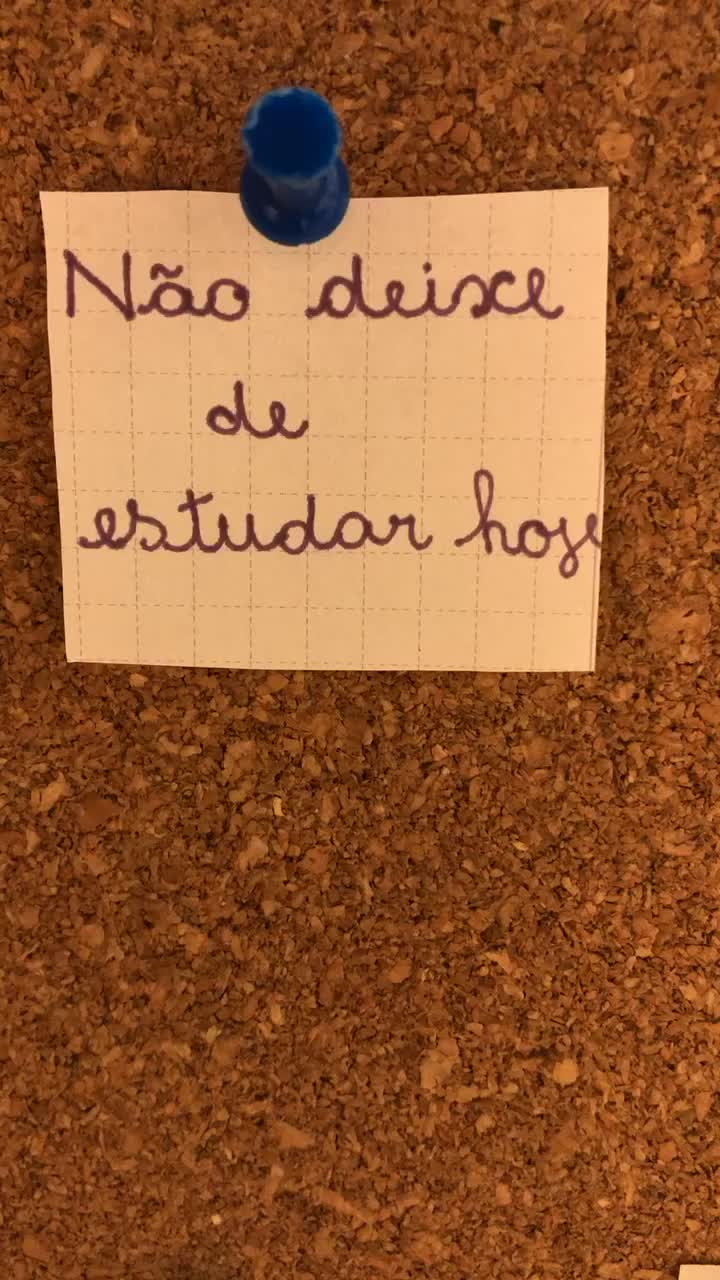 Não deixe
de
estudar hoje